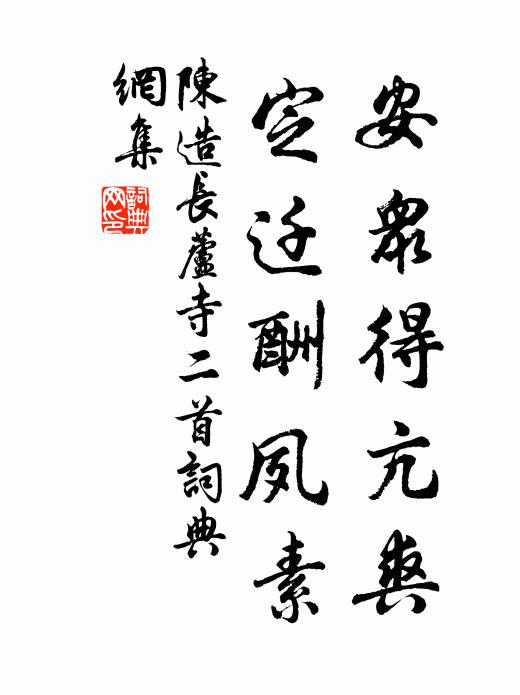 安眾得亢爽
定迁酬夙素
陳造長蘆寺二首詞典
網集
詞典
网印